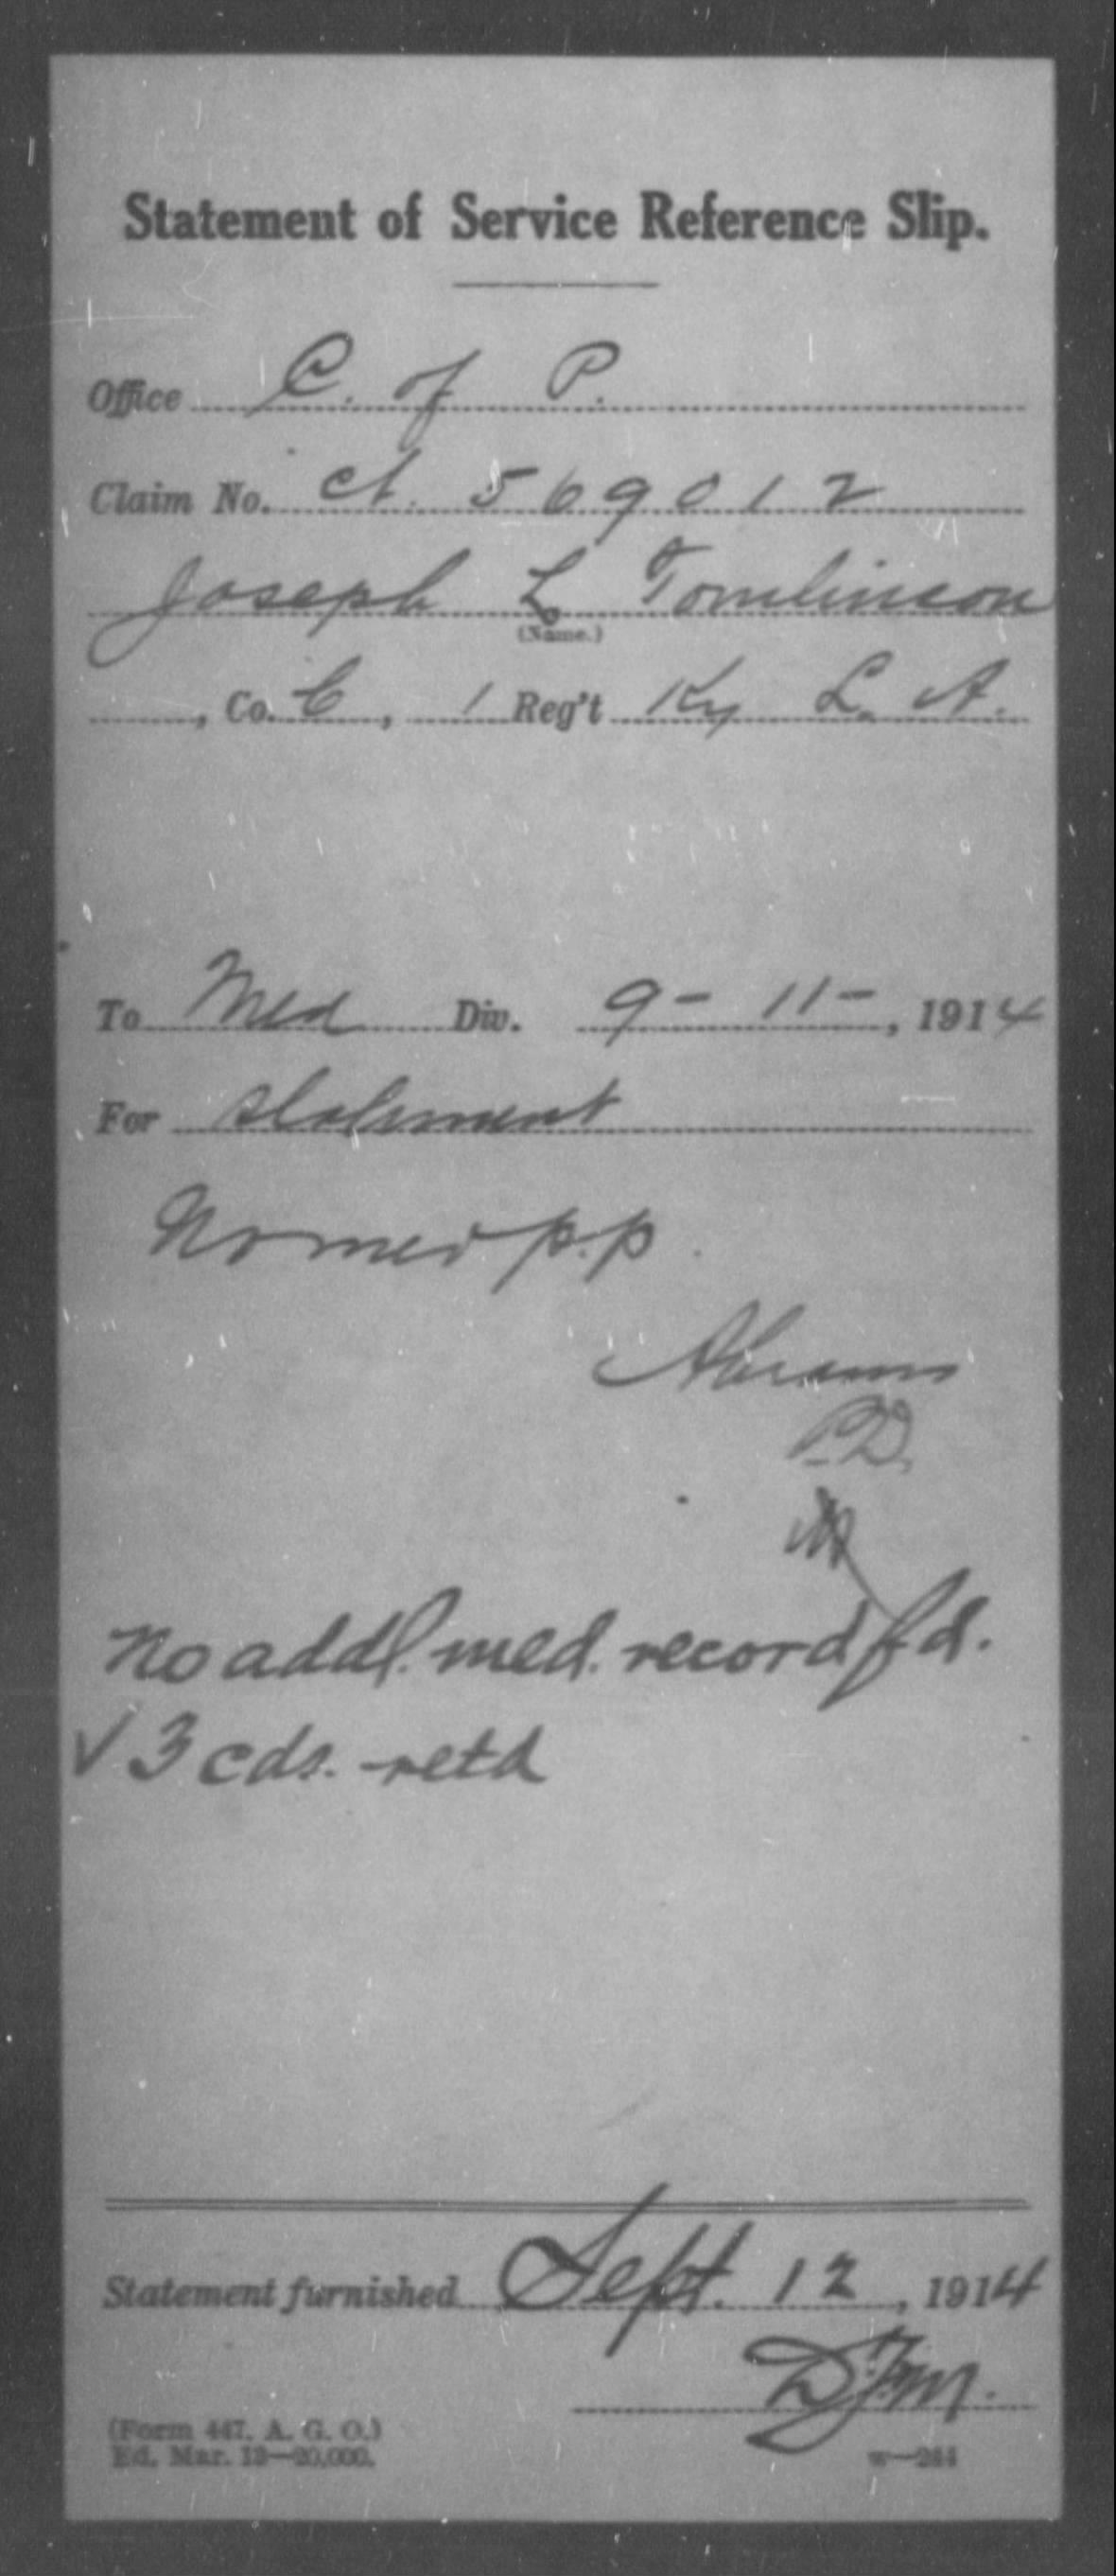 Statement of Service Reference Slip.
Office C. of P.
Claim No. ct. 569012
Joseph L Tomlinson
(Name.)
, Co. C, 1 Reg't Ky L. A.
To Med Div. 9-11-, 1914
For statement
No med p.p.
Abrams
P.D.
M
No addl. med. record fd.
√ 3 cds. retd
Statement furnished Sept. 12, 1914
D.F.M.
(Form 447, A. G. O.)
Ed. Mar. 12—20,000.
w—244